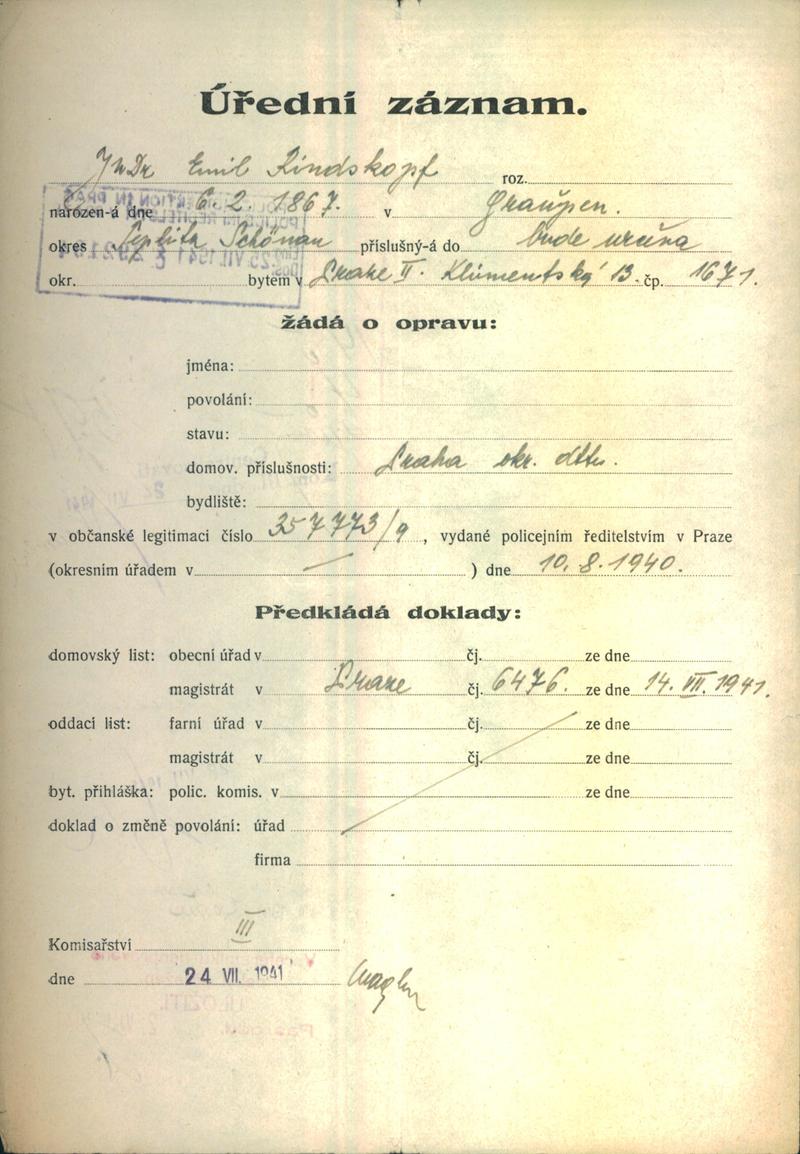 Úřední záznam.
JUDr Emil Rindskopf roz.
narozen-á dne 6. 2. 1867. v Graupen.
okres Teplitz Schönau příslušný-á do bude určena
okr. bytem v Praze II. Klimentská 13. čp. 1671.
žádá o opravu:
jména:
povolání:
stavu:
domov. příslušnosti: Praha okr. dtto.
bydliště:
v občanské legitimaci číslo 357773/9, vydané policejním ředitelstvím v Praze
(okresním úřadem v — ) dne 10. 8. 1940.
Předkládá doklady:
domovský list: obecní úřad v čj. ze dne
magistrát v Praze čj. 6476. ze dne 14. VII. 1941.
oddací list: farní úřad v čj. ze dne
magistrát v čj. ze dne
byt. přihláška: polic. komis. v ze dne
doklad o změně povolání: úřad
firma
Komisařství III
dne 24 VII. 1941